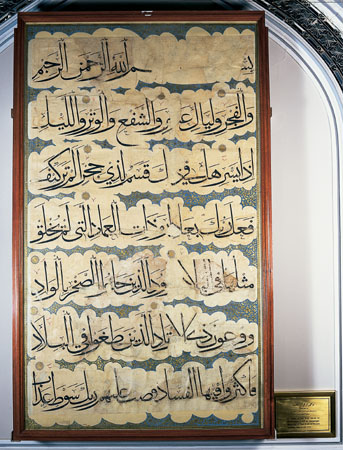 بسم الله الرحمن الرحيم
والفجر وليال عشر والشفع والوتر والليل
اذا يسر هل في ذلك قسم لذي حجر الم تر كيف
فعل ربك بعاد ارم ذات العماد التي لم يخلق
مثلها في البلاد وثمود الذين جابوا الصخر بالواد
وفرعون ذي الاوتاد الذين طغوا في البلاد
فاكثروا فيها الفساد فصب عليهم ربك سوط عذاب